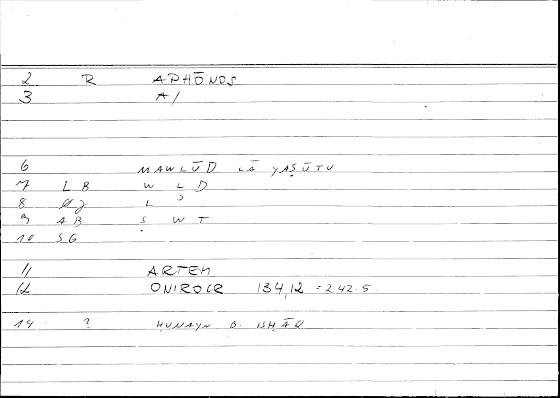 2 R APHŌNOS
3 A/
6 MAWLŪD LĀ YAṢŪTU
7 LB W L D
8 L ʾ
9 AB Ṣ W T
10 SG
11 ARTEM
12 ONIROCR 134,12 = 242.5.
14 ? ḤUNAYN B. ISḤĀQ